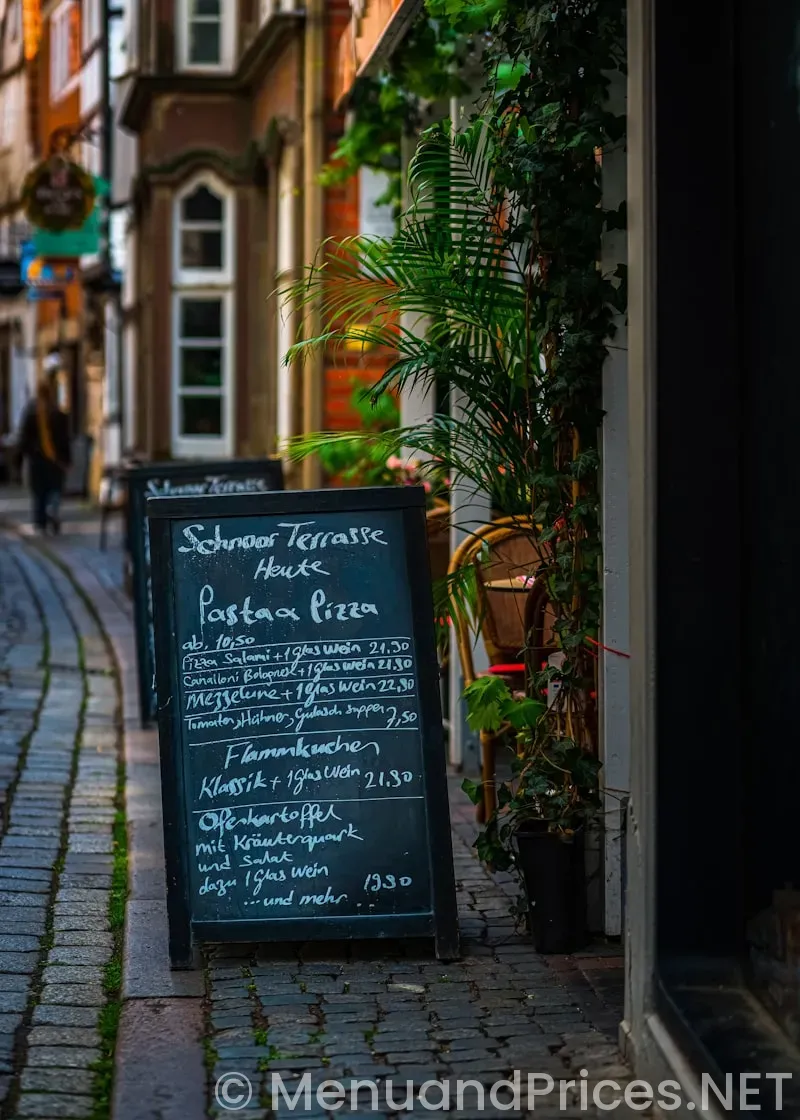 Schnoor Terrasse
Schnoor Terrasse
Heute
Pasta & Pizza
ab. 10,50
Pizza Salami + 1 Glas Wein 21.90
Canalloni Bolognese + 1 Glas Wein 21,90
Mezzelune + 1 Glas Wein 22,90
Tomaten, Hühner, Gulasch suppen 7,50
Flammkuchen
Klassik + 1 Glas Wein 21.90
Ofenkartoffel
mit Kräuterquark
und Salat
dazu 1 Glas Wein 19.90
... und mehr ..
© MenuandPrices.NET